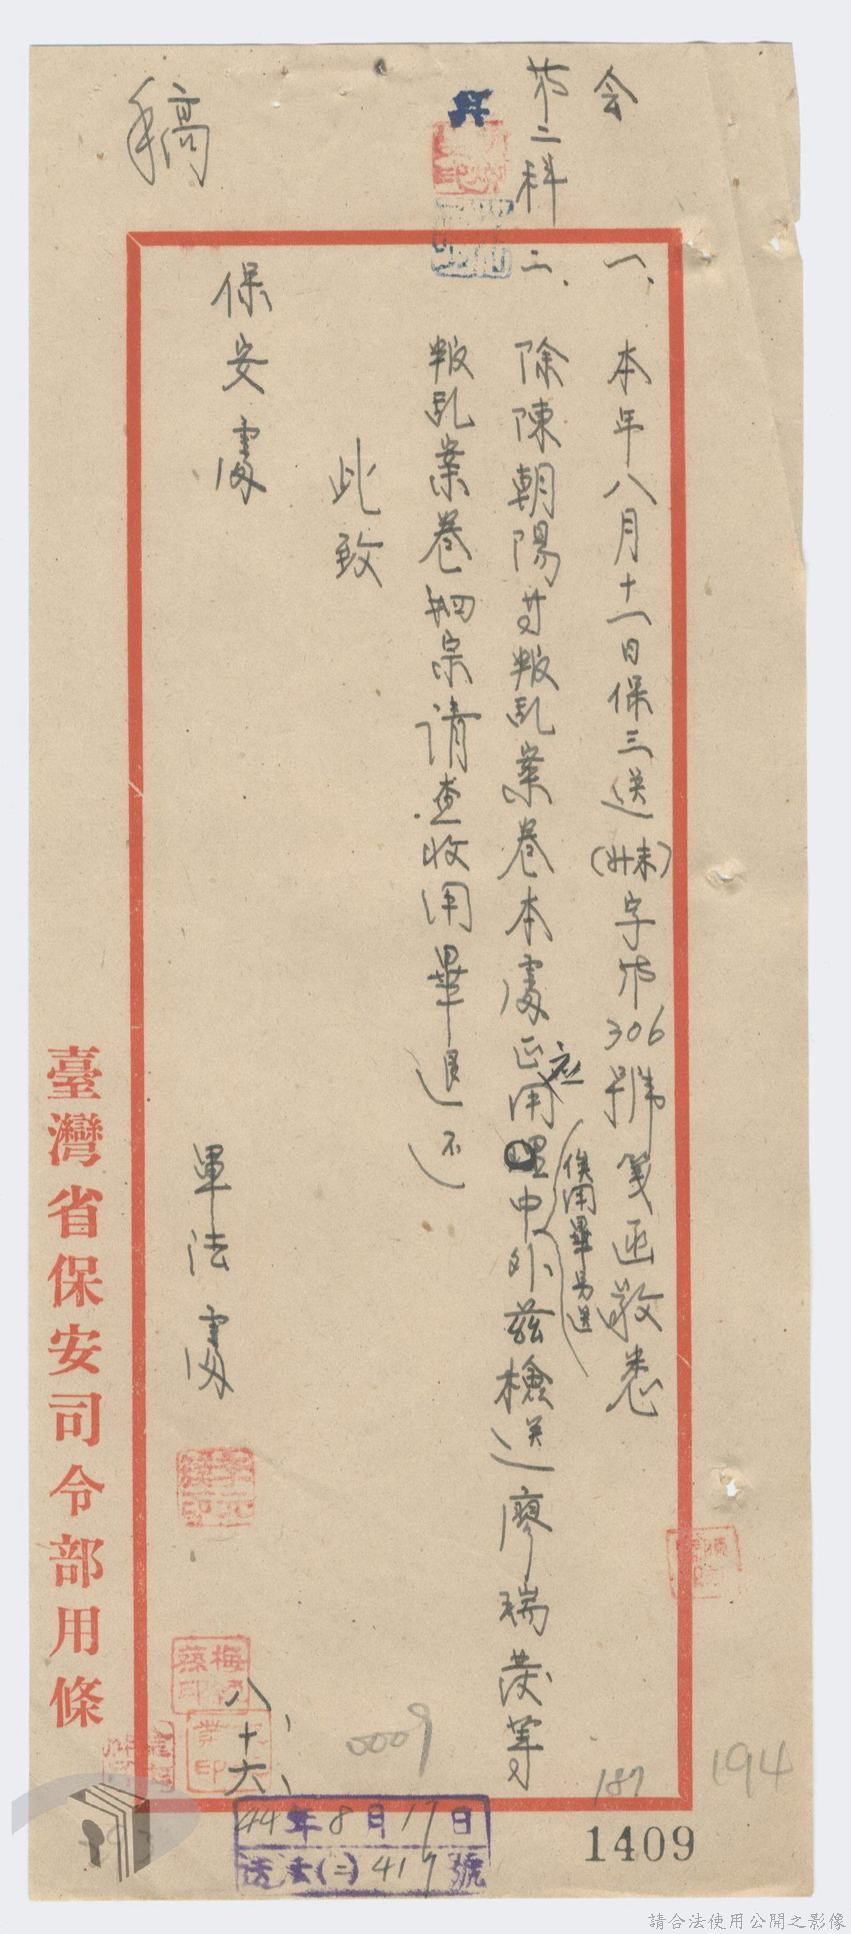 会
第二科
稿
一、本年八月十一日保三送(卅未)字第306號箋函敬悉
二、除陳朝陽等叛乱案卷本處正应用中外兹檢送廖瑞發等
俟用畢另送
叛乱案卷四宗请查收用畢退还
此致
保安處
軍法處
八、十六、
臺灣省保安司令部用條
0009
187
194
44年8月17日
送法(二)417號
1409
請合法使用公開之影像